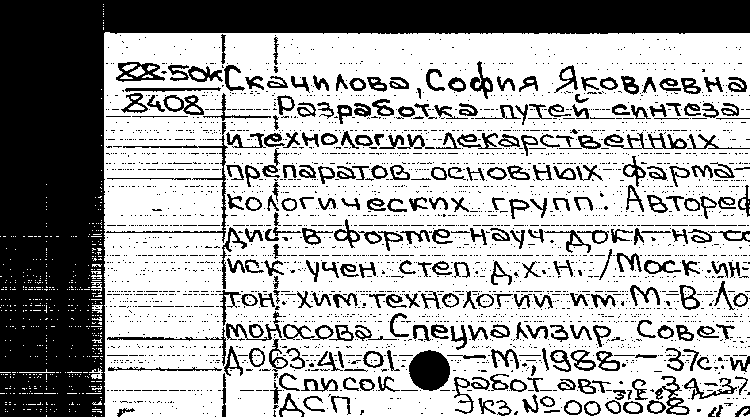 88-50к Скачилова, София Яковлевна
8408 Разработка путей синтеза
и технологии лекарственных
препаратов основных фарма-
кологических групп: Автореф
дис. в форме науч. докл. на со
иск. учен. степ. д.х.н. /Моск.ин-
тон. хим.технологии им.М.В.Ло
моносова. Специализир. совет
Д 063.41-01 -М.,1988.- 37с.:
Список работ авт.: с.34-37
ДСП. Экз.№000008.